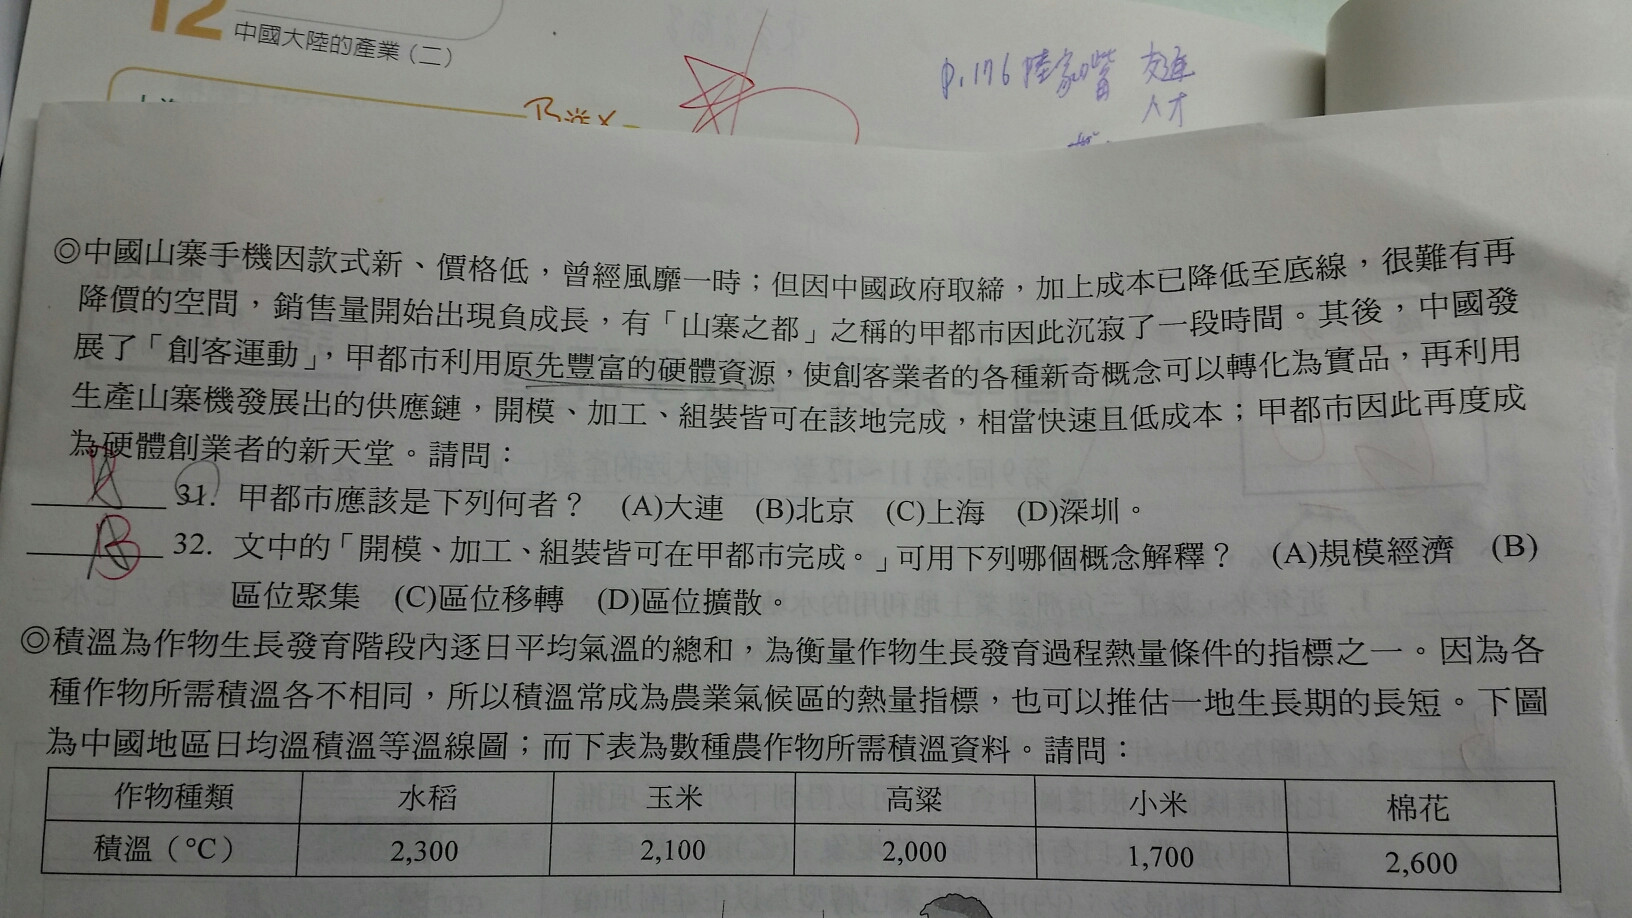 12 中國大陸的產業（二）
p.176 陸家嘴 交通
人才
◎中國山寨手機因款式新、價格低，曾經風靡一時；但因中國政府取締，加上成本已降低至底線，很難有再
降價的空間，銷售量開始出現負成長，有「山寨之都」之稱的甲都市因此沉寂了一段時間。其後，中國發
展了「創客運動」，甲都市利用原先豐富的硬體資源，使創客業者的各種新奇概念可以轉化為實品，再利用
生產山寨機發展出的供應鏈，開模、加工、組裝皆可在該地完成，相當快速且低成本；甲都市因此再度成
為硬體創業者的新天堂。請問：
31. 甲都市應該是下列何者？ (A)大連 (B)北京 (C)上海 (D)深圳。
B 32. 文中的「開模、加工、組裝皆可在甲都市完成。」可用下列哪個概念解釋？ (A)規模經濟 (B)
區位聚集 (C)區位移轉 (D)區位擴散。
◎積溫為作物生長發育階段內逐日平均氣溫的總和，為衡量作物生長發育過程熱量條件的指標之一。因為各
種作物所需積溫各不相同，所以積溫常成為農業氣候區的熱量指標，也可以推估一地生長期的長短。下圖
為中國地區日均溫積溫等溫線圖；而下表為數種農作物所需積溫資料。請問：
作物種類 水稻 玉米 高粱 小米 棉花
積溫（℃） 2,300 2,100 2,000 1,700 2,600